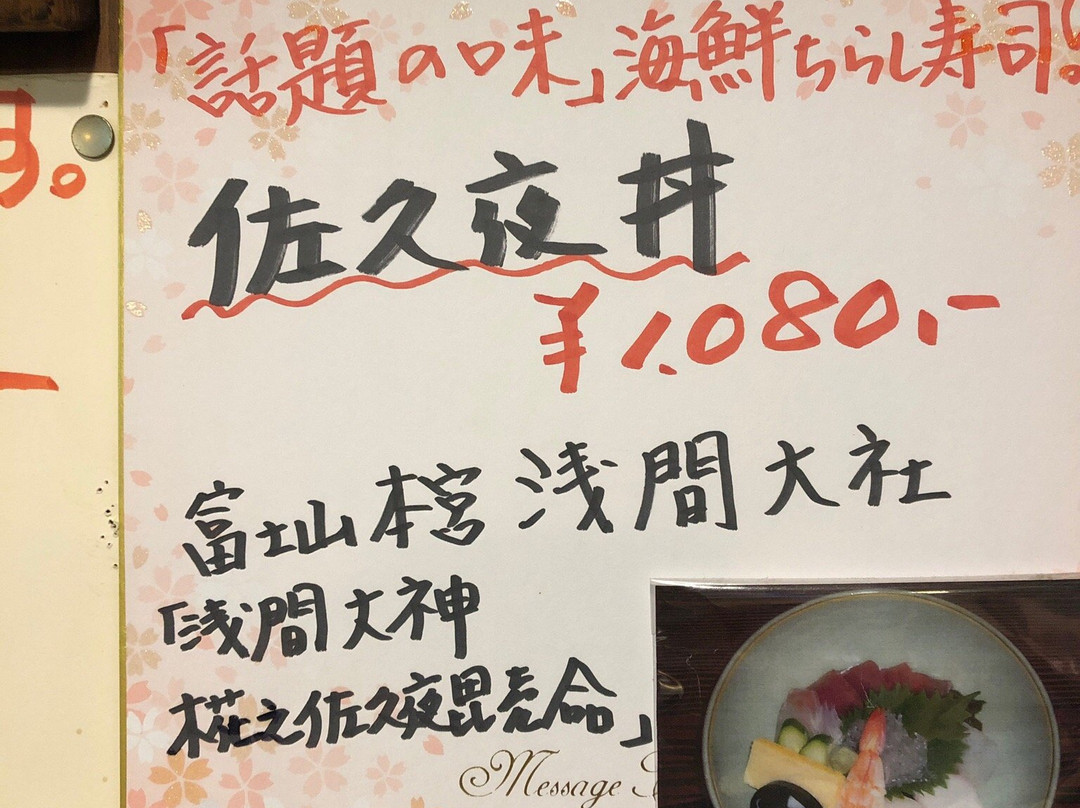 「話題の味」海鮮ちらし寿司!
佐久夜丼
¥1,080,-
富士山本宮 浅間大社
「浅間大神
木花之佐久夜毘売命」
Message
す。